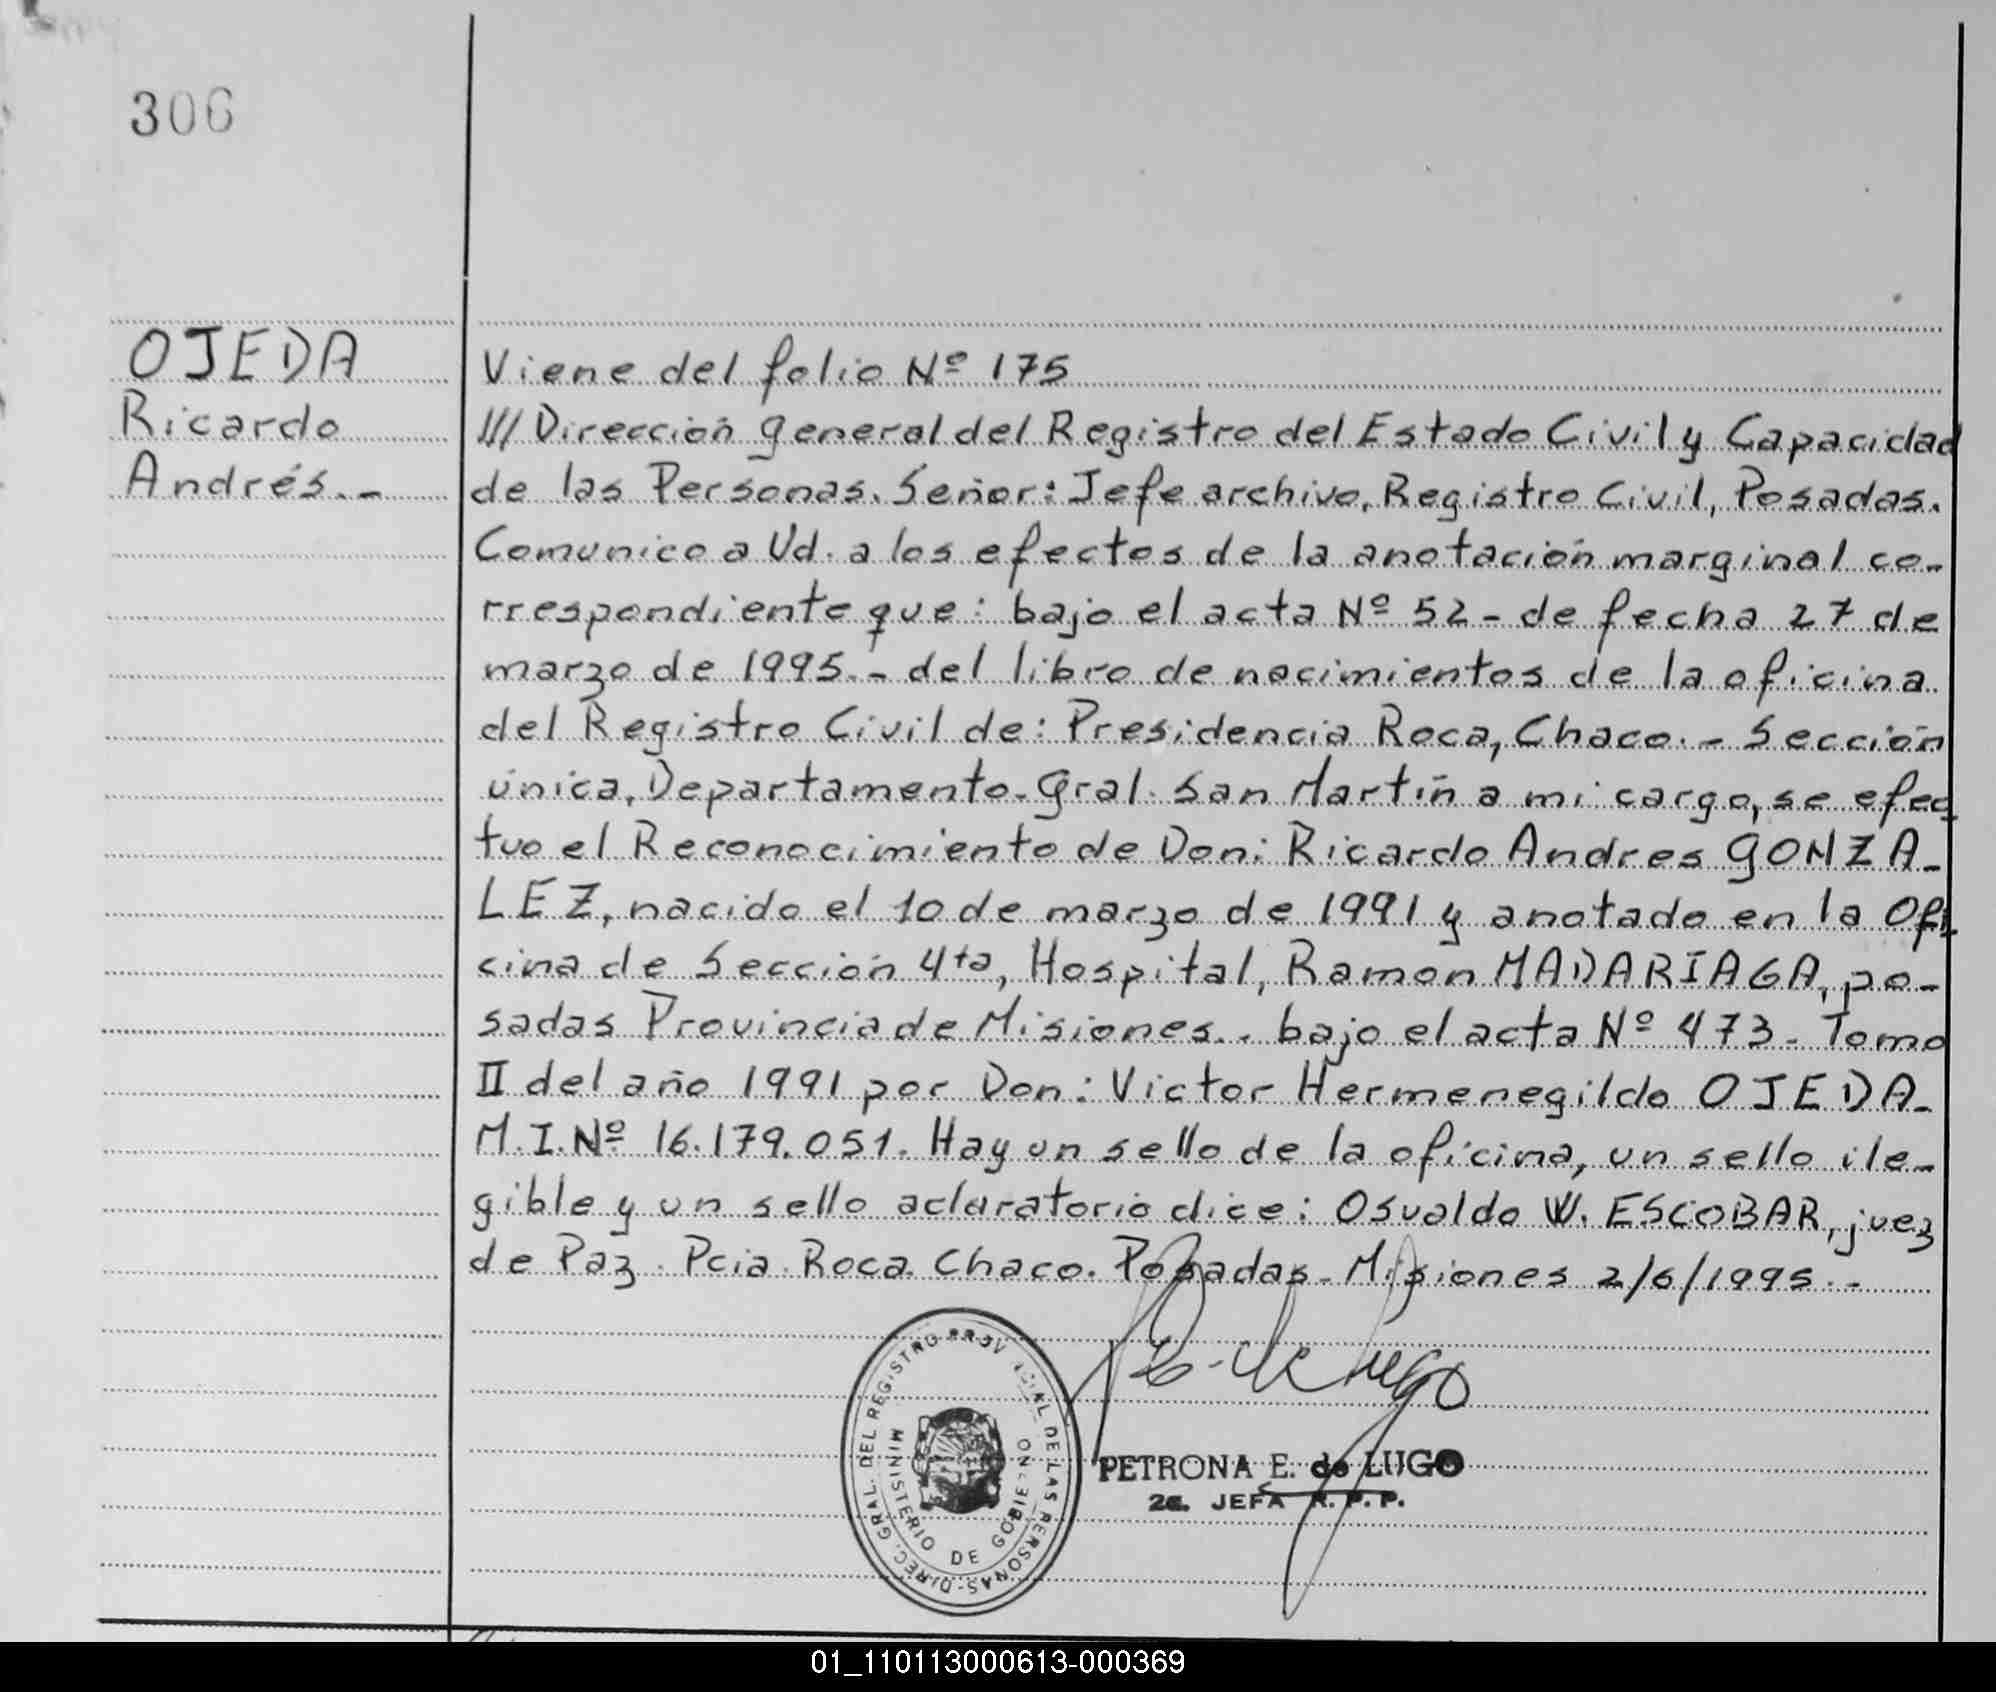 306
OJEDA
Ricardo
Andrés.-
Viene del folio Nº 175
/// Dirección general del Registro del Estado Civil y Capacidad
de las Personas. Señor: Jefe archivo, Registro Civil, Posadas.
Comunico a Ud. a los efectos de la anotación marginal co-
rrespondiente que: bajo el acta Nº 52 - de fecha 27 de
marzo de 1995.- del libro de nacimientos de la oficina
del Registro Civil de: Presidencia Roca, Chaco.- Sección
única, Departamento. Gral. San Martín a mi cargo, se efec
tuo el Reconocimiento de Don: Ricardo Andres GONZA-
LEZ, nacido el 10 de marzo de 1991 y anotado en la Ofi
cina de Sección 4ta, Hospital, Ramon MADARIAGA, po-
sadas Provincia de Misiones.. bajo el acta Nº 473 - Tomo
II del año 1991 por Don: Victor Hermenegildo OJEDA-
M.I.Nº 16.179.051. Hay un sello de la oficina, un sello ile-
gible y un sello aclaratorio dice: Osvaldo W. ESCOBAR, juez
de Paz. Pcia. Roca. Chaco. Posadas - Misiones 2/6/1995.-
DIREC. GRAL. DEL REGISTRO PROVINCIAL DE LAS PERSONAS
MINISTERIO DE GOBIERNO
PETRONA E. de LUGO
2a. JEFA R. P. P.
01_110113000613-000369